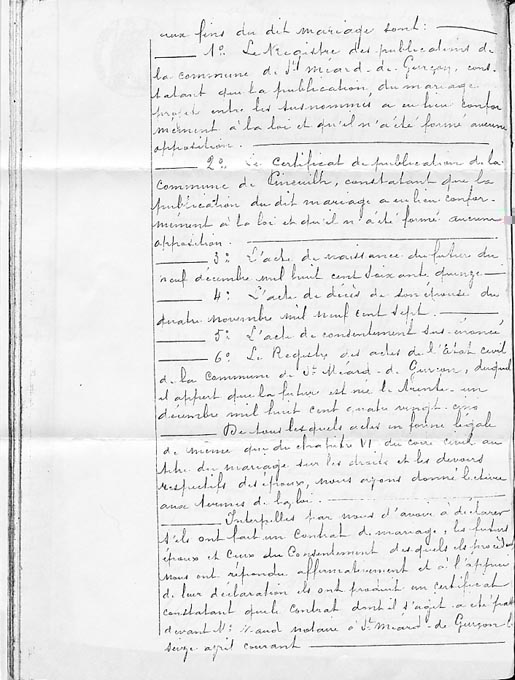 aux fins du dit mariage sont :
1º Le Registre des publications de
la commune de St Méard-de-Gurçon, cons-
tatant que la publication du mariage
projeté entre les susnommés a eu lieu confor
mément à la loi et qu'il n'a été formé aucune
opposition.
2º Le certificat de publication de la
commune de Pineuilh, constatant que la
publication du dit mariage a eu lieu confor-
mément à la loi et qu'il n'a été formé aucune
opposition.
3º L'acte de naissance du futur du
neuf décembre mil huit cent soixante quinze
4º L'acte de décès de son épouse du
quatre novembre mil neuf cent sept.
5º L'acte de consentement sus-énoncé
6º Le Registre des actes de l'Etat civil
de la commune de St Méard-de-Gurçon, duquel
il appert que la future est née le trente-un
décembre mil huit cent quatre vingt cinq
De tous lesquels actes en forme légale
de même que du chapitre VI du code civil au
titre du mariage sur les droits et les devoirs
respectifs des époux, nous avons donné lecture
aux termes de la loi.
Interpellés par nous d'avoir à déclarer
s'ils ont fait un contrat de mariage, les futurs
époux et ceux du consentement desquels ils procèdent
nous ont répondu affirmativement et à l'appui
de leur déclaration ils ont produit un certificat
constatant que le contrat dont il s'agit a été passé
devant Me notaire à St Méard-de-Gurçon le
seize avril courant